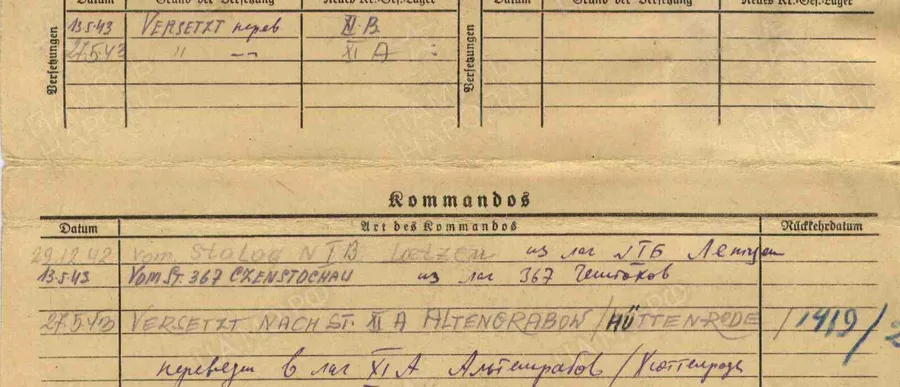 Datum Grund der Versetzung Neues Kr.-Gef.-Lager Datum Grund der Versetzung Neues Kr.-Gef.-Lager
Versetzungen
13.5.43 VERSETZT перев XI B
27.5.43 " — XI A
Versetzungen
Kommandos
Datum Art des Kommandos Rückkehrdatum
29.12.42 vom Stalag N I B Lötzen из лаг N IБ Летцен
13.5.43 VOM ST. 367 CZENSTOCHAU из лаг 367 Чештохов
27.5.43 VERSETZT NACH ST. XI A ALTENGRABOW / HÜTTENRODE / 1419/
переведен в лаг XI A Альтенграбов / Хюттенроде